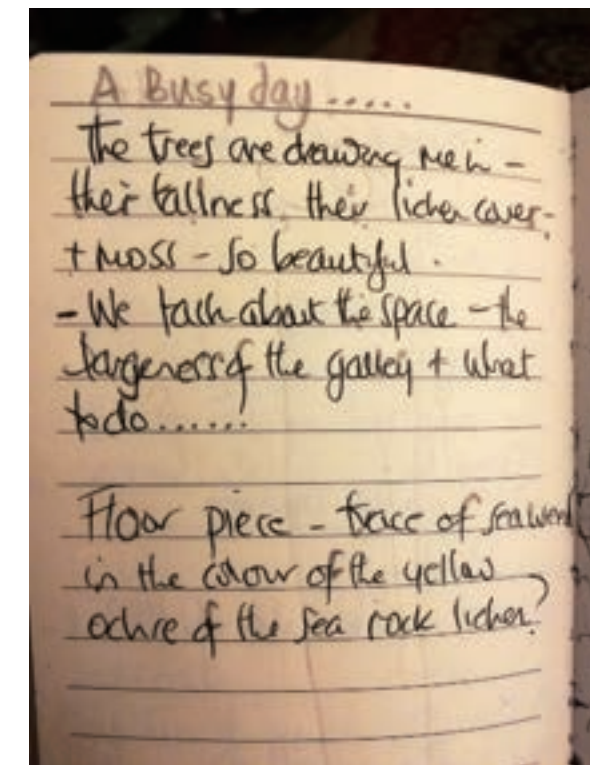 A Busy day .....
The trees are drawing me in -
their tallness, their lichen cover -
+ moss - so beautiful .
- We talk about the space - the
largeness of the gallery + what
to do ......
Floor piece - trace of seaweed
in the colour of the yellow
ochre of the sea rock lichen?